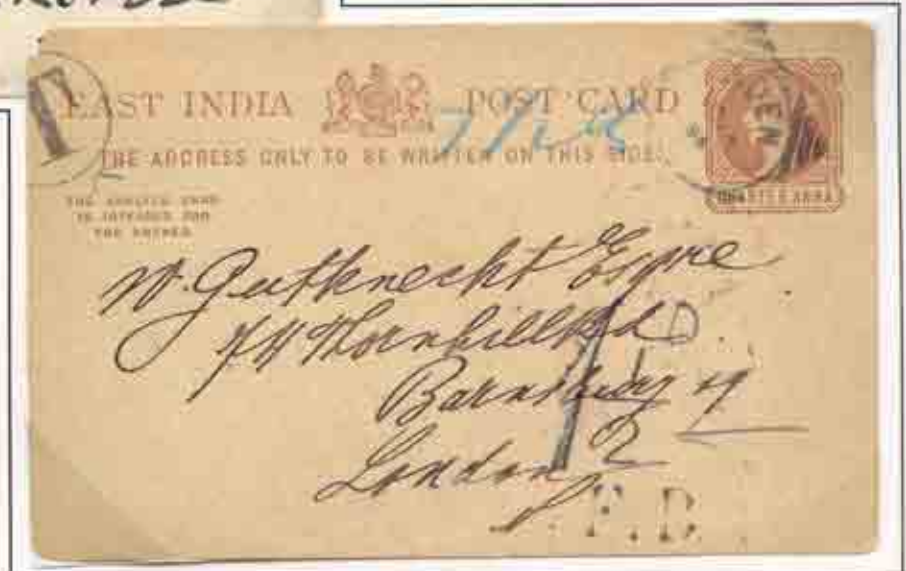 T
EAST INDIA POST CARD
THE ADDRESS ONLY TO BE WRITTEN ON THIS SIDE.
THE ANNEXED CARD
IS INTENDED FOR
THE ANSWER
QUARTER ANNA
W. Gutknecht Esqre
Thornhill Rd
Barnsbury N
London
1½D